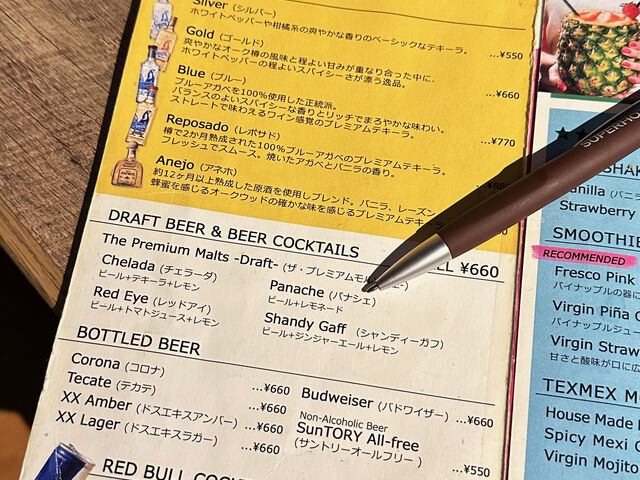 Silver (シルバー)
ホワイトペッパーや柑橘系の爽やかな香りのベーシックなテキーラ。
...¥550
Gold (ゴールド)
爽やかなオーク樽の風味と程よい甘みが重なり合った中に、
ホワイトペッパーの程よいスパイシーさが漂う逸品。
...¥660
Blue (ブルー)
ブルーアガベを100%使用した正統派。
バランスのよいスパイシーな香りとリッチでまろやかな味わい。
ストレートで味わえるワイン感覚のプレミアムテキーラ。
...¥770
Reposado (レポサド)
樽で2か月熟成された100%ブルーアガベのプレミアムテキーラ。
フレッシュでスムース。焼いたアガベとバニラの香り。
Anejo (アネホ)
約12ヶ月以上熟成した原酒を使用しブレンド。バニラ、レーズン
蜂蜜を感じるオークウッドの確かな味を感じるプレミアムテキーラ
DRAFT BEER & BEER COCKTAILS
¥660
The Premium Malts -Draft- (ザ・プレミアムモル
Chelada (チェラーダ)
ビール+テキーラ+レモン
Panache (パナシェ)
ビール+レモネード
Red Eye (レッドアイ)
ビール+トマトジュース+レモン
Shandy Gaff (シャンディーガフ)
ビール+ジンジャーエール+レモン
BOTTLED BEER
Corona (コロナ) ...¥660
Tecate (テカテ) ...¥660
XX Amber (ドスエキスアンバー) ...¥660
XX Lager (ドスエキスラガー) ...¥660
Budweiser (バドワイザー) ...¥660
Non-Alcoholic Beer
SunTORY All-free
(サントリーオールフリー)
...¥550
RED BULL
SUPER
Strawberry
SMOOTHIE
RECOMMENDED
Fresco Pink
パイナップルの器に
Virgin Piña
パイナップルジュー
Virgin Straw
甘さと酸味が口に広
TEXMEX
House Made
Spicy Mexi
Virgin Mojito